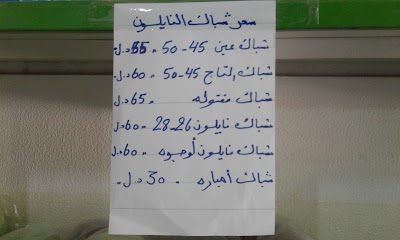 سعر شباك النايلون
شباك عين 45-50 . 55 د.ل.
شباك التاج 45-50 . 60 د.ل.
شباك مفتوله . 65 د.ل.
شباك نايلون 26-28 . 60 د.ل.
شباك نايلون أوجبوه . 60 د.ل.
شباك أمباره . 30 د.ل.